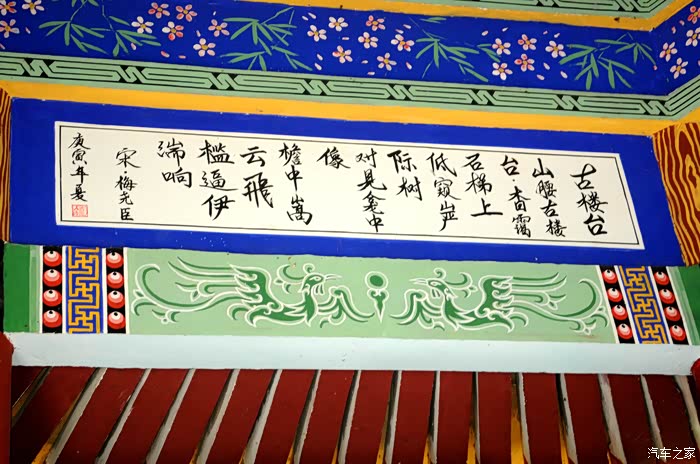 古楼台
山腰古楼
台·杳霭
石梯上
低窥岩
际树
对见龛中
像
檐中嵩
云飞
槛逼伊
湍响
宋 梅尧臣
庚寅年夏
汽车之家